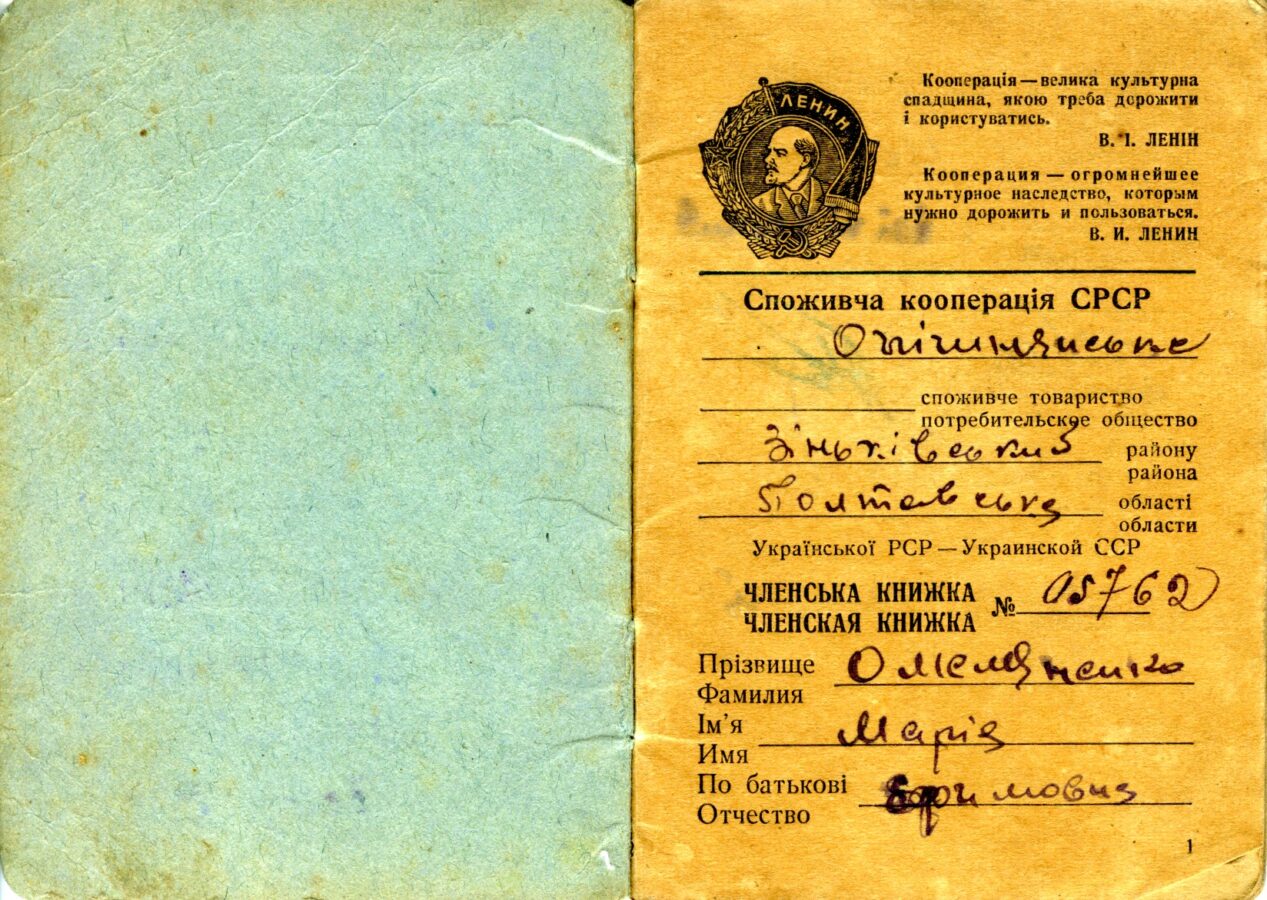 ЛЕНИН
Кооперація — велика культурна
спадщина, якою треба дорожити
і користуватись.
В. І. ЛЕНІН
Кооперация — огромнейшее
культурное наследство, которым
нужно дорожить и пользоваться.
В. И. ЛЕНИН
Споживча кооперація СРСР
Опішнянське
споживче товариство
потребительское общество
Зіньківський району
района
Полтавська області
области
Української РСР — Украинской ССР
ЧЛЕНСЬКА КНИЖКА
ЧЛЕНСКАЯ КНИЖКА № 05762
Прізвище Омеляненко
Фамилия
Ім'я Марія
Имя
По батькові
Отчество
1